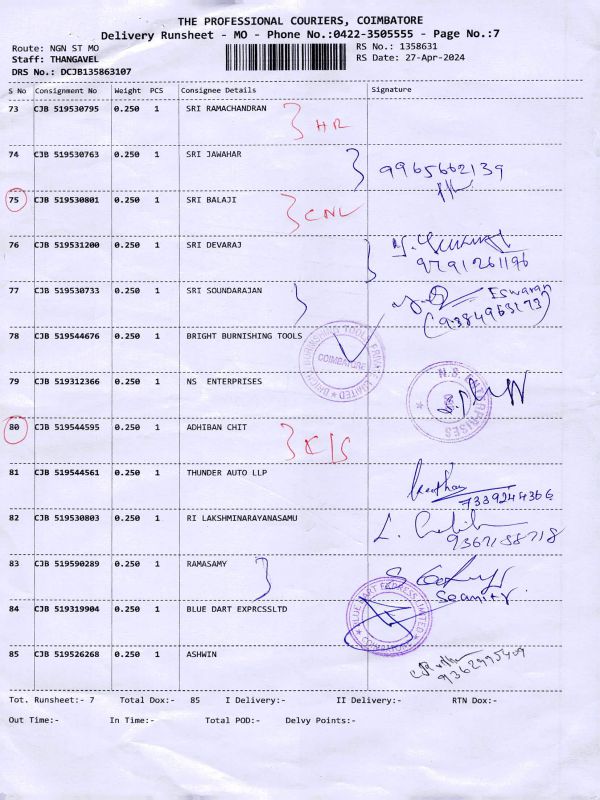 THE PROFESSIONAL COURIERS, COIMBATORE
Delivery Runsheet - MO - Phone No.:0422-3505555 - Page No.:7
Route: NGN ST MO
RS No.: 1358631
Staff: THANGAVEL
RS Date: 27-Apr-2024
DRS No.: DCJB135863107
S No Consignment No Weight PCS Consignee Details Signature
73 CJB 519530795 0.250 1 SRI RAMACHANDRAN HR
74 CJB 519530763 0.250 1 SRI JAWAHAR 9965662139
75 CJB 519530801 0.250 1 SRI BALAJI CNL
76 CJB 519531200 0.250 1 SRI DEVARAJ
9791261196
77 CJB 519530733 0.250 1 SRI SOUNDARAJAN Eswaran
(9384963173)
78 CJB 519544676 0.250 1 BRIGHT BURNISHING TOOLS
COIMBATORE
79 CJB 519312366 0.250 1 NS ENTERPRISES
N.S. ENTERPRISES
80 CJB 519544595 0.250 1 ADHIBAN CHIT
81 CJB 519544561 0.250 1 THUNDER AUTO LLP
7339244366
82 CJB 519530803 0.250 1 RI LAKSHMINARAYANASAMU
9367158718
83 CJB 519590289 0.250 1 RAMASAMY
84 CJB 519319904 0.250 1 BLUE DART EXPRCSSLTD
BLUE DART EXPRESS LIMITED
85 CJB 519526268 0.250 1 ASHWIN
9362995409
Tot. Runsheet:- 7 Total Dox:- 85 I Delivery:- II Delivery:- RTN Dox:-
Out Time:- In Time:- Total POD:- Delvy Points:-